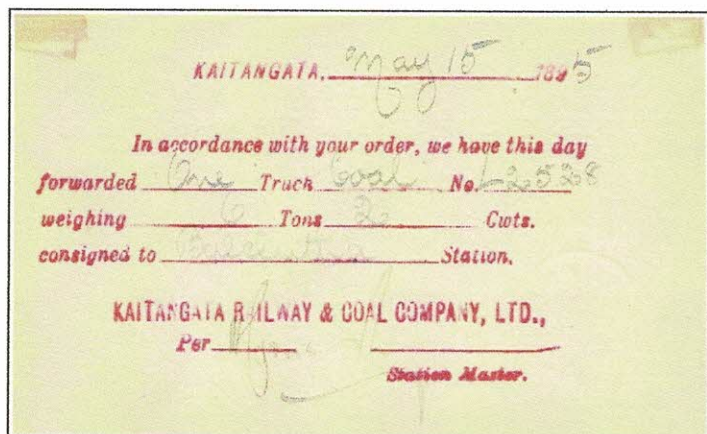 KAITANGATA, May 15 1895
In accordance with your order, we have this day
forwarded One Truck Coal No. L2528
weighing 6 Tons 2 Cwts.
consigned to Station.
KAITANGATA RAILWAY & COAL COMPANY, LTD.,
Per
Station Master.